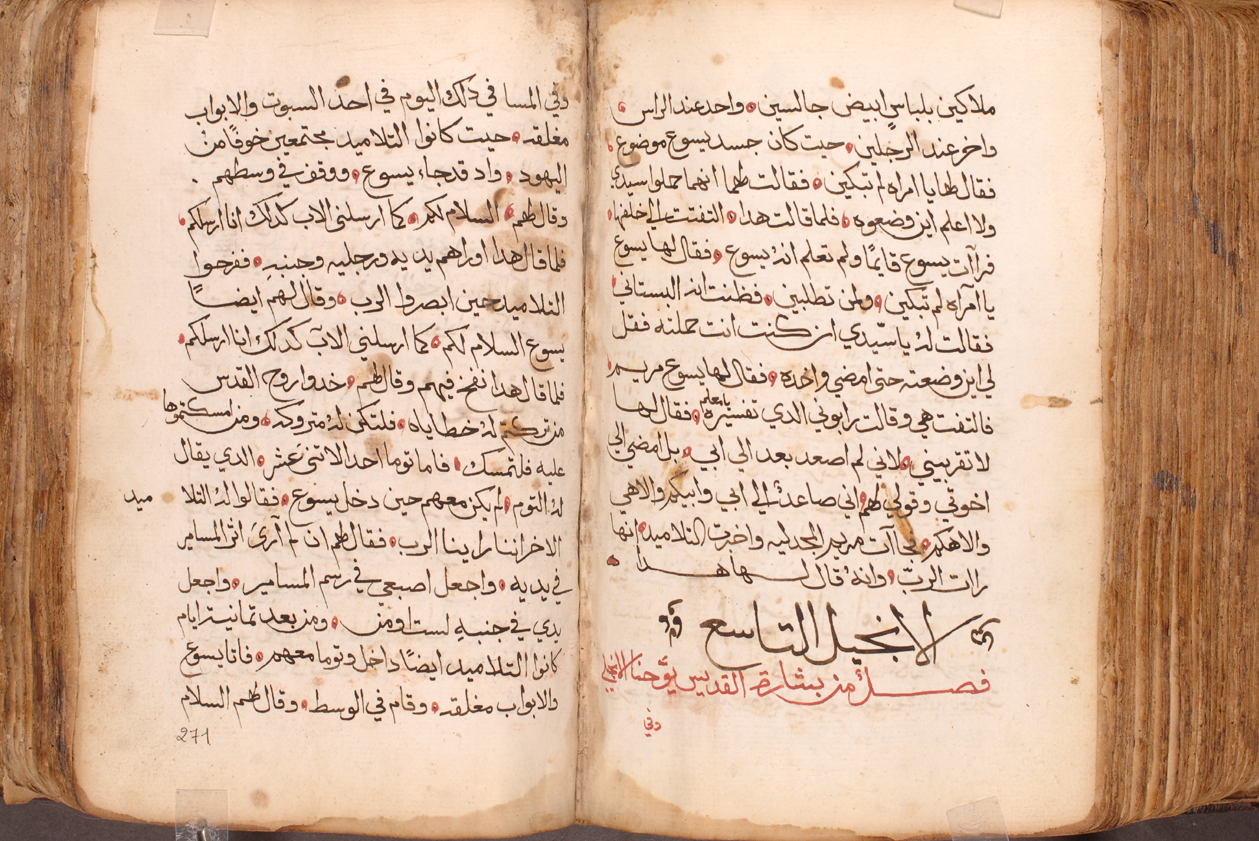 ملاكين بلباسٍ ابيض جالسين • واحد عند الراس •
واخر عند الرجلين • حيت كان جسد يسوع موضوع •
فقال لها يا امراه لم تبكين • فقالت لهما انهما حملوا سيدي
ولا اعلم اين وضعوه • فلما قالت هدا • التفتت الي خلفها •
فرأت يسوع قايمًا ولم تعلم انهُ يسوع • فقال لها يسوع
يا امرآه لم تبكين • ولمن تطلبين • فظنت انه البستاني •
فقالت لهُ يا سيدي ان كنت انت حملته فقل
لي اين وضعته حتى امضي واخده • فقال لها يسوع مريم •
فالتفت هي وقالت رابوني الدي تفسيره يامعلم • فقال لها
لا تقربيني • لاني لم اصعد بعد الي ابي • بل امضي الي
اخوتي وقولي لهم • اني صاعدٌ الي ابي وابيكم والاهي
والاهكم • فجاآت مريم المجدليه واخبرت التلاميد • انها
رات الربّ • وانه قال لها هدا •
الانجيل التاسع
فصلٌ من بشارة القديس يوحنا الانجيلي
وفي
وفي المسا في دلك اليوم في احد السبوت والابواب
مغلقه • حيت كانوا التلاميد مجتمعين خوفًا من
اليهود • واد قد جاء يسوع • ووقف في وسطهم •
وقال لهم • السلام لكم • كما ارسلني الاب كدلك انا ارسلكم •
فلما قال هدا اوراهم يديه ورجليه وجنبهِ • ففرحوا
التلاميد حين ابصروا الرب • وقال لهم ايضاً
يسوع السلام لكم • كما ارسلني الآب كدلك انا ارسلكم •
فلما قال هدا نفخ فيهم وقال لهم • خدوا روح القدس
من تركتم لهُ خطاياه • فلتكن لهُ متروكه • ومن امسكتموها
عليه فلتمسك • فاما توما احد الاتنى عشر • الدي يقال
لهُ التوم • لم يكن معهم حين دخل يسوع • فقالوا لهُ التلا ميد
الاخر اننا راينا الرب • فقال لهم ان لم آرى اتر المسامير
في يديه • واجعل اصبعي في رسم المسامير • واجعل
يدي في جنبهِ لست اومن • ومن بعد تمانية ايام
كانوا التلاميد ايضًا داخل وتوما معهم • فاتا يسوع
والابواب مغلقه • وقام في الوسط • وقال لهم السلام
271